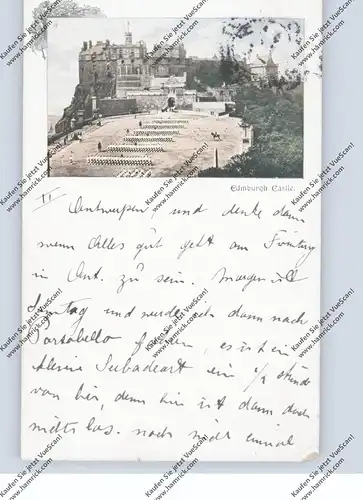 Edinburgh Castle.
II
Antwerpen und denke dann
wenn Alles gut geht am Freitag
in Ant. zu sein. Morgen ist
Sonntag und werde ich dann nach
Portobello fahren, es ist ein
kleine Seebadeort ein 1/2 Stunde
von hier, denn hier ist dann doch
nichts los. noch nicht einmal
Kaufen Sie jetzt VueScan!
www.hamrick.com